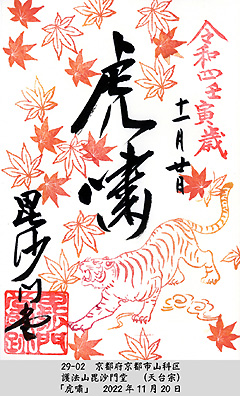 令和四壬寅歳
十一月廿日
虎嘯
毘沙門堂
29-02 京都府京都市山科区
護法山毘沙門堂 (天台宗)
「虎嘯」 2022年11月20日